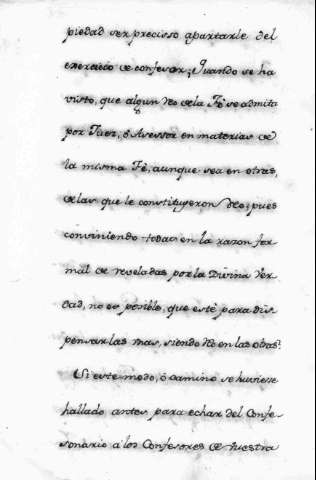 piedad ser preciso apartarle del
exercicio de confesor; Quando se ha
visto, que algun Reo de la Fè se admita
por Juez, ò Asessor en materias de
la misma Fè, aunque sea en otras,
de las que le constituyeron Reo; pues
conviniendo todas en la razon for
mal de reveladas por la Divina Ver
dad, no es posible, que estè para dis
pensarlas mas, siendo Rèo en las otras?
Si este modo, ò camino se huviesse
hallado antes para echar del Confe-
sonario a los Confesores de nuestra